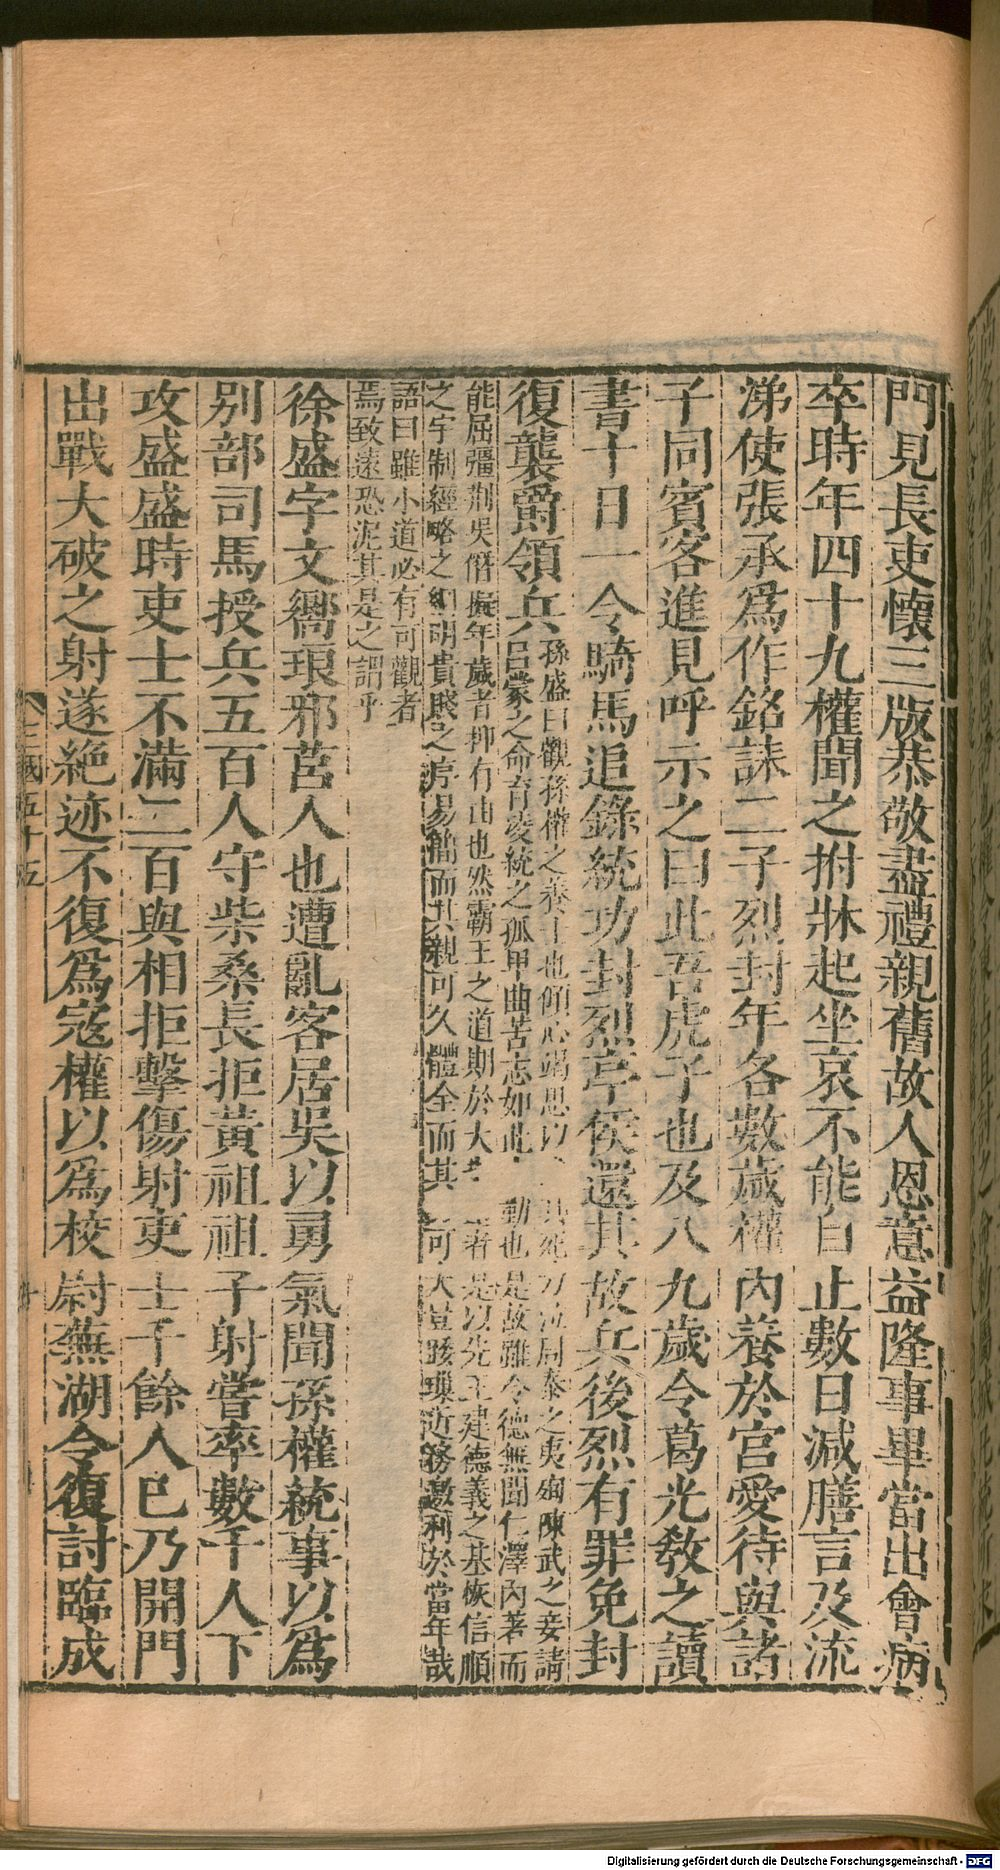 門見長吏懷三版恭敬盡禮親舊故人恩意益隆事畢當出會病
卒時年四十九權聞之拊牀起坐哀不能自止數日減膳言及流
涕使張承爲作銘誄二子烈封年各數歲權內養於宮愛待與諸
子同賓客進見呼示之曰此吾虎子也及八九歲令葛光敎之讀
書十日一令騎馬追錄統功封烈亭侯還其故兵後烈有罪免封
復襲爵領兵
孫盛曰觀孫權之養士也傾心竭思以其死力泣周泰之夷殉陳武之妾請
呂蒙之命育凌統之孤卑曲苦志如此動也是故雖令德無聞仁澤內著而
能屈彊荆吳僭擬年歲者抑有由也然霸王之道期於大者是以先王建德義之基恢信順
之宇制經略之綱明貴賤之序易簡而其親可久體全而其可大豈踐璅近務激利於當年哉
語曰雖小道必有可觀者
焉致遠恐泥其是之謂乎
徐盛字文嚮琅邪莒人也遭亂客居吳以勇氣聞孫權統事以爲
別部司馬授兵五百人守柴桑長拒黃祖祖子射嘗率數千人下
攻盛盛時吏士不滿二百與相拒擊傷射吏士千餘人已乃開門
出戰大破之射遂絕迹不復爲寇權以爲校尉蕪湖令復討臨成
三國五十五
十
Digitalisierung gefördert durch die Deutsche Forschungsgemeinschaft - DFG